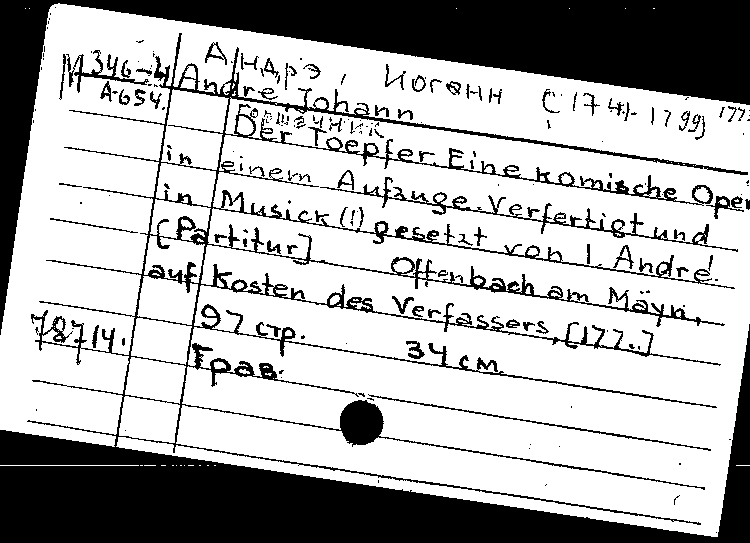 М 346-4 Андрэ, Иоганн (1741-1799) 177
А-654. Andre Johann
Горшечник
Der Toepfer. Eine komische Oper
in einem Aufzuge. Verfertigt und
in Musick (!) gesetzt von I. André.
[Partitur]. Offenbach am Mayn,
auf Kosten des Verfassers, [177..]
97 стр. 34 см.
78714. Грав.